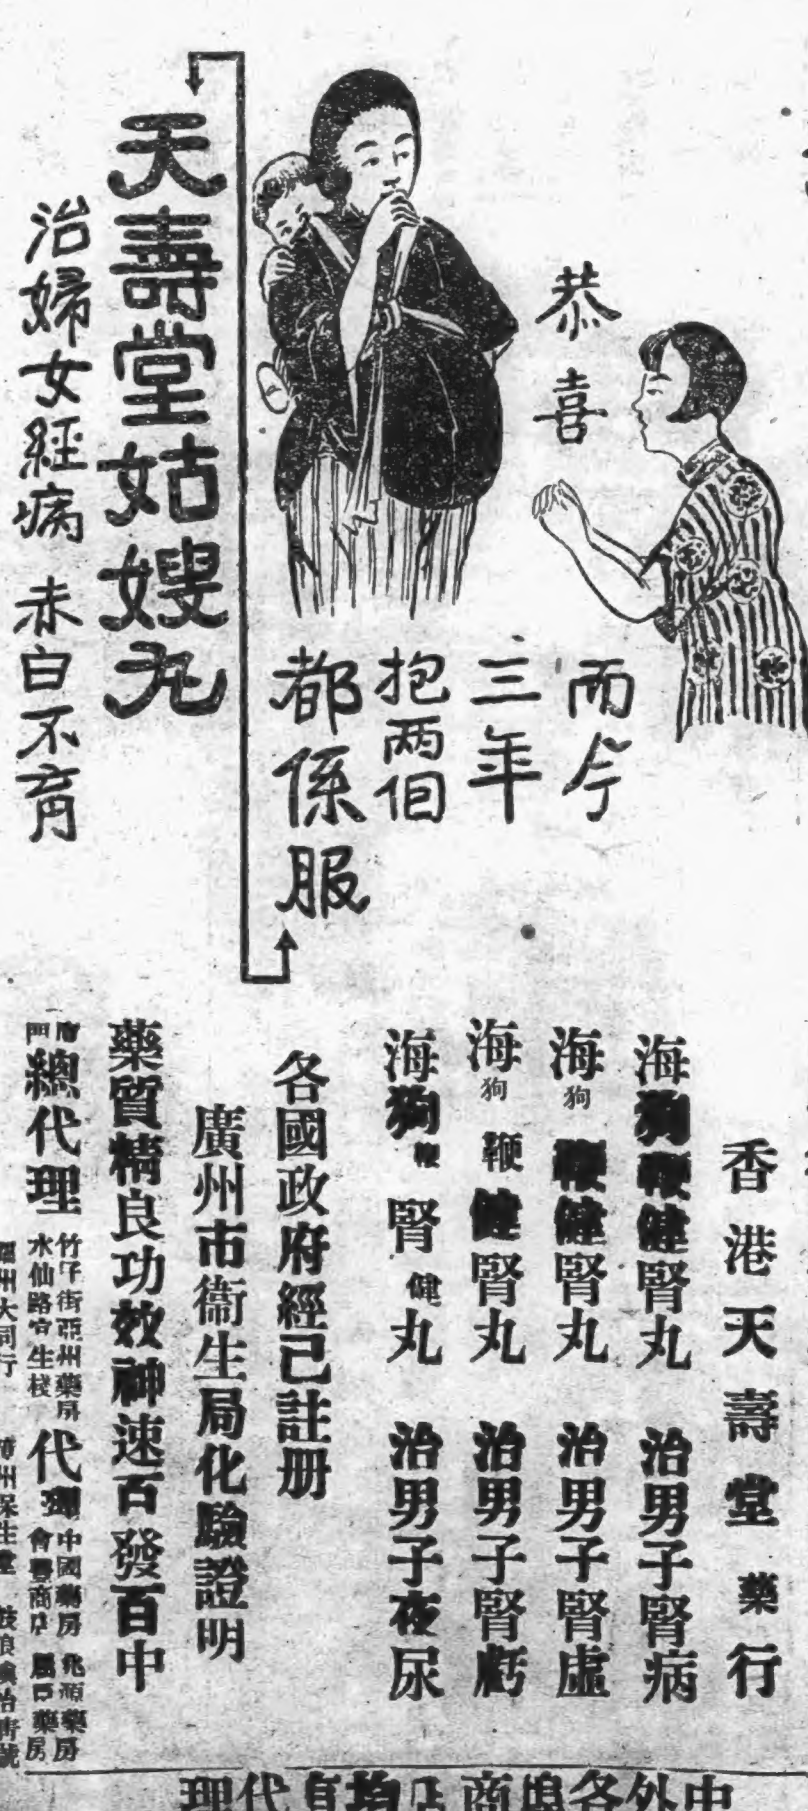 恭喜
而今
三年
抱两個
都係服
天壽堂姑嫂丸
治婦女經病 赤白不育
香港天壽堂藥行
海狗鞭健腎丸 治男子腎病
海狗鞭健腎丸 治男子腎虛
海狗鞭健腎丸 治男子腎虧
海狗鞭腎健丸 治男子夜尿
各國政府經已註册
廣州市衛生局化驗證明
藥質精良功效神速百發百中
總代理
竹仔街亞州藥房
水仙路 生棧
代理
中國藥房 兆 藥房
會 商店 藥房
州大同行 州保生堂
中外各埠商店均有代理